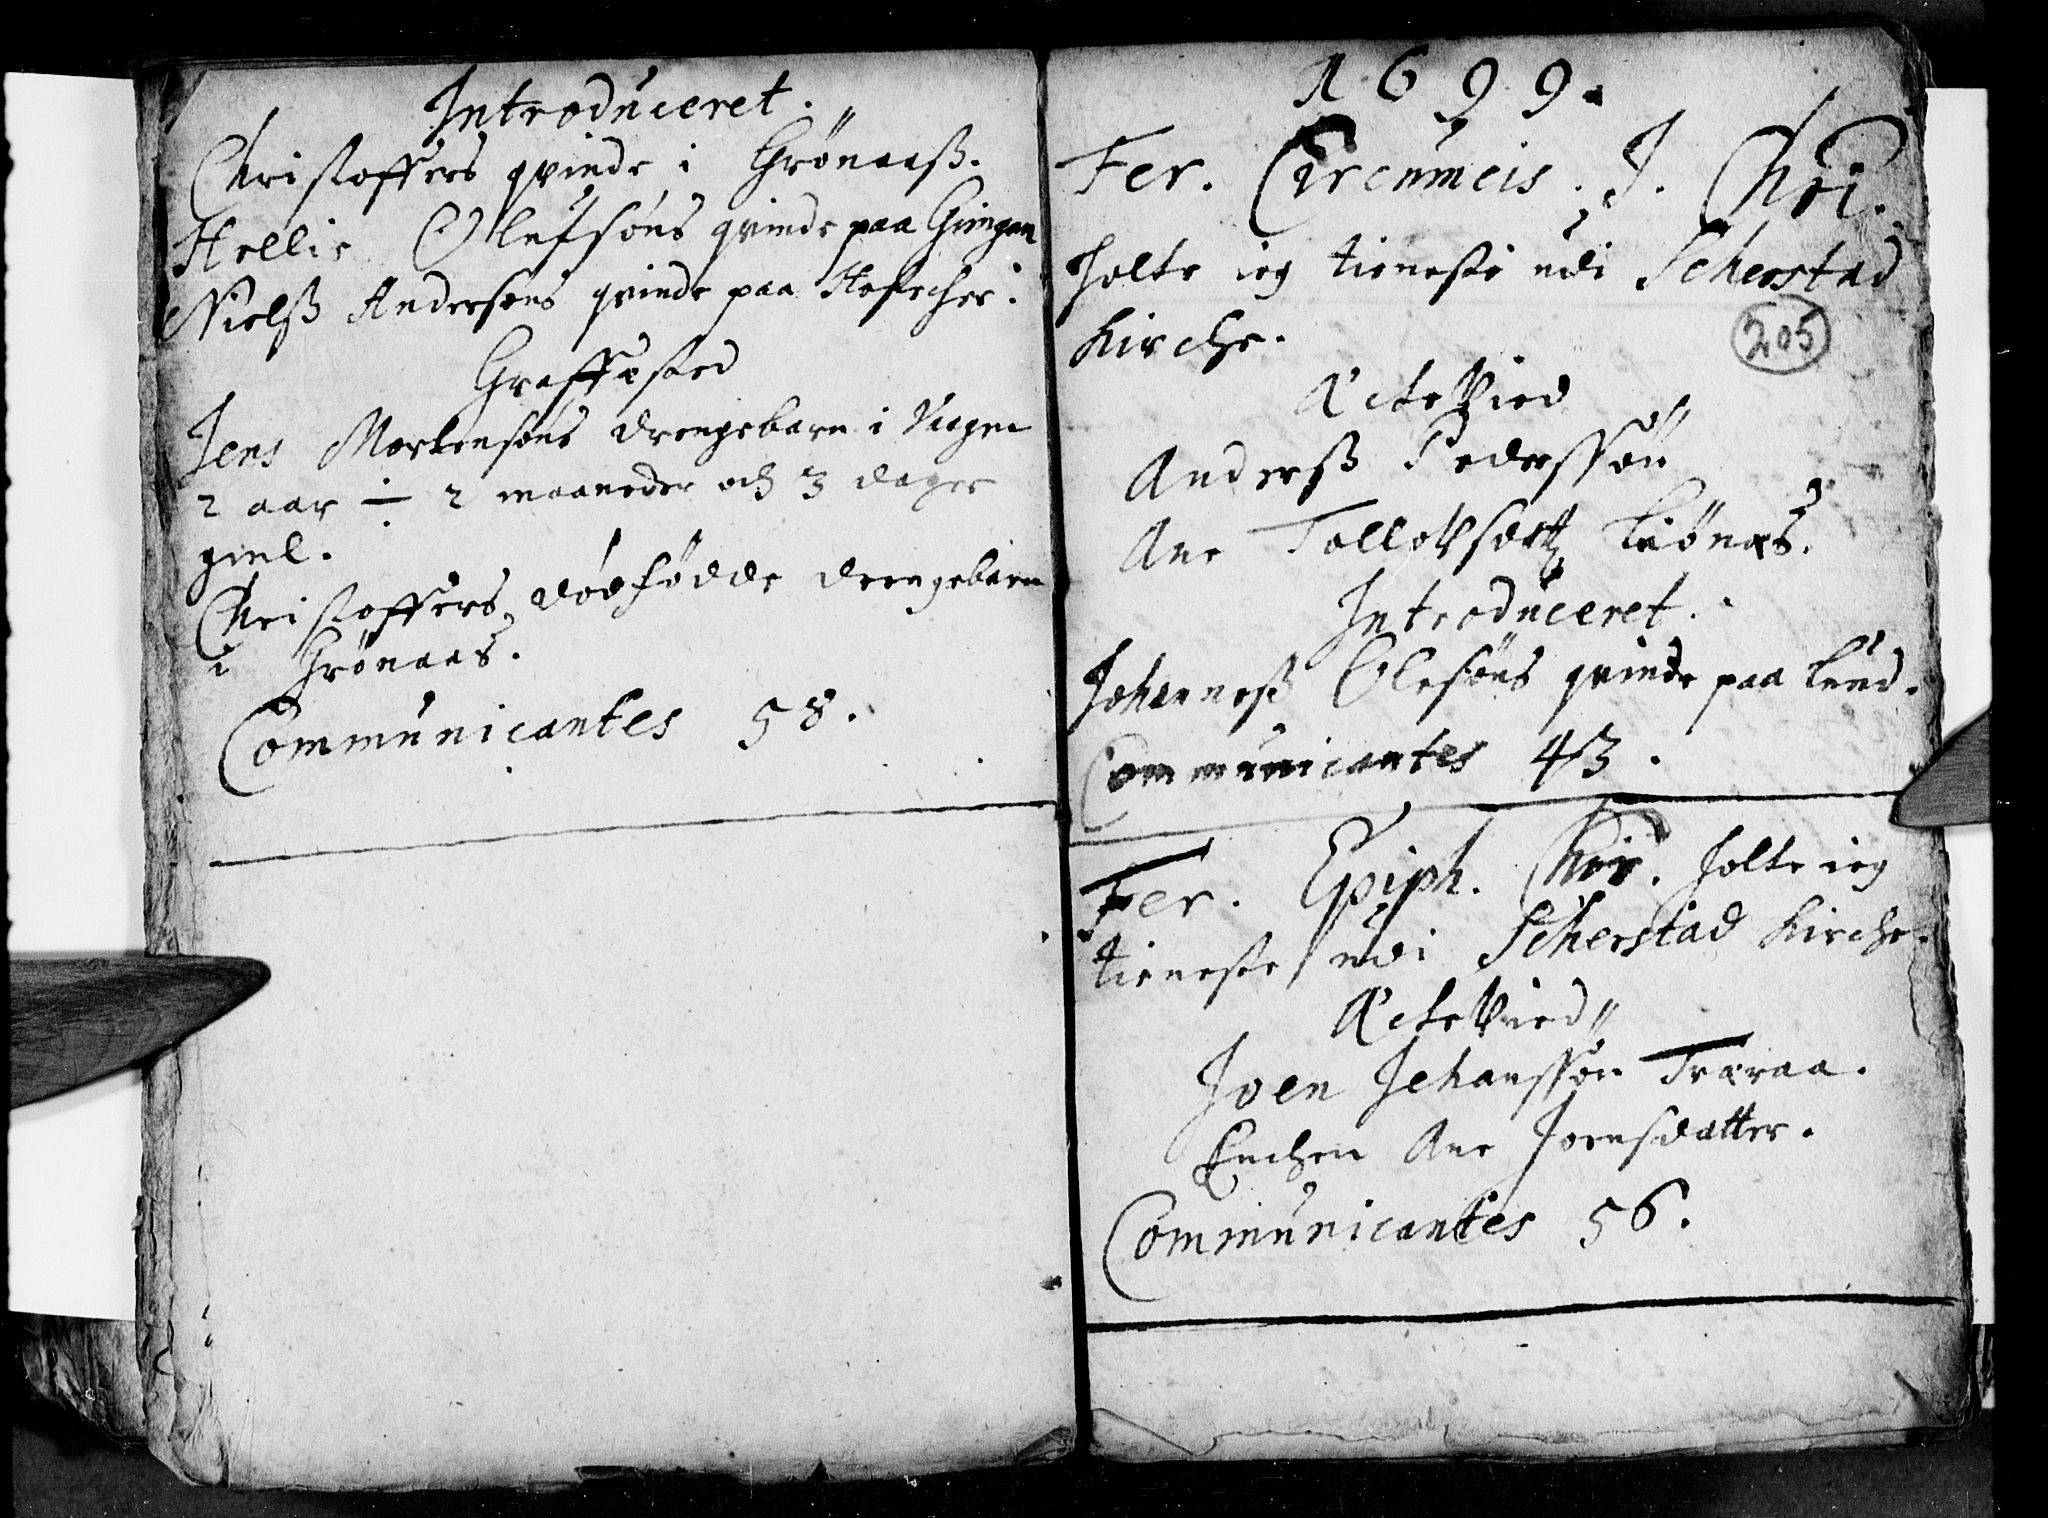 Introduceret.
Christoffers qvinde i Grönaaß.
Hellie Olufsöns qvinde paa Gimgen
Nielß Andersöns qvinde paa
Graffæsted
Jens Mortensöns drengebarn i Vagen
2 aar ÷ 2 maaneder och 3 dager
gml.
Christoffers dödfödde drengebarn
i Grönaas.
Communicantes 58.
1699.
Fer. Circumcis. J. Chri.
holte ieg tieneste udi Scherstad
Kirche.
205
Ecte Vied
Anderß Pederssön
Ane Lönaas.
Introduceret.
Johanneß Olesöns qvinde paa Lund.
Communicantes 43.
Fer. Epiph. Chr. holte ieg
tieneste udi Scherstad Kirche.
Ecte Vied
Joen Johanssön Træraa.
Enchen Ane Joensdatter.
Communicantes 56.